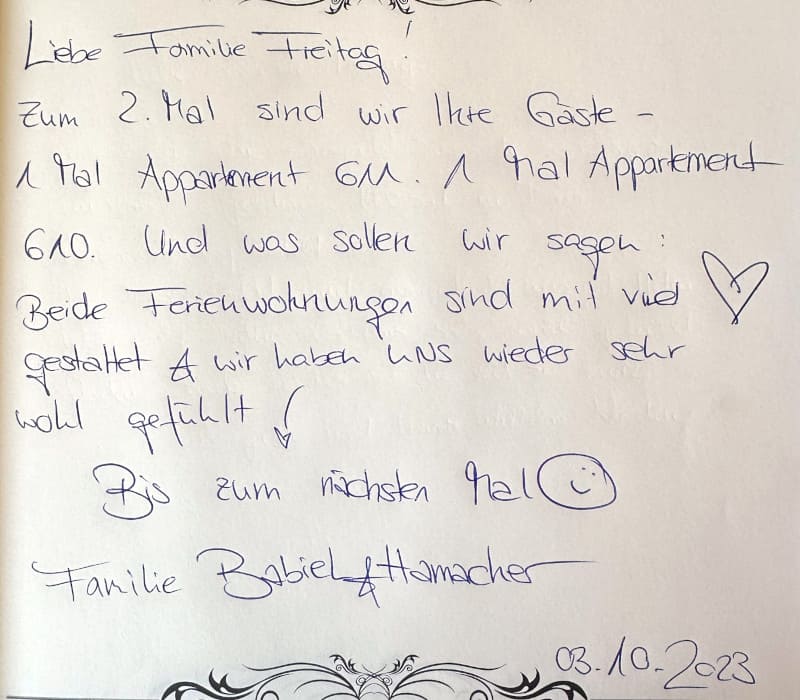 Liebe Familie Freitag!
Zum 2. Mal sind wir Ihre Gäste -
1 Mal Appartement 611. 1 Mal Appartement
610. Und was sollen wir sagen:
Beide Ferienwohnungen sind mit viel ♡
gestaltet & wir haben uns wieder sehr
wohl gefühlt ↓
Bis zum nächsten Mal ☺
Familie Babiel & Hamacher
03.10.2023